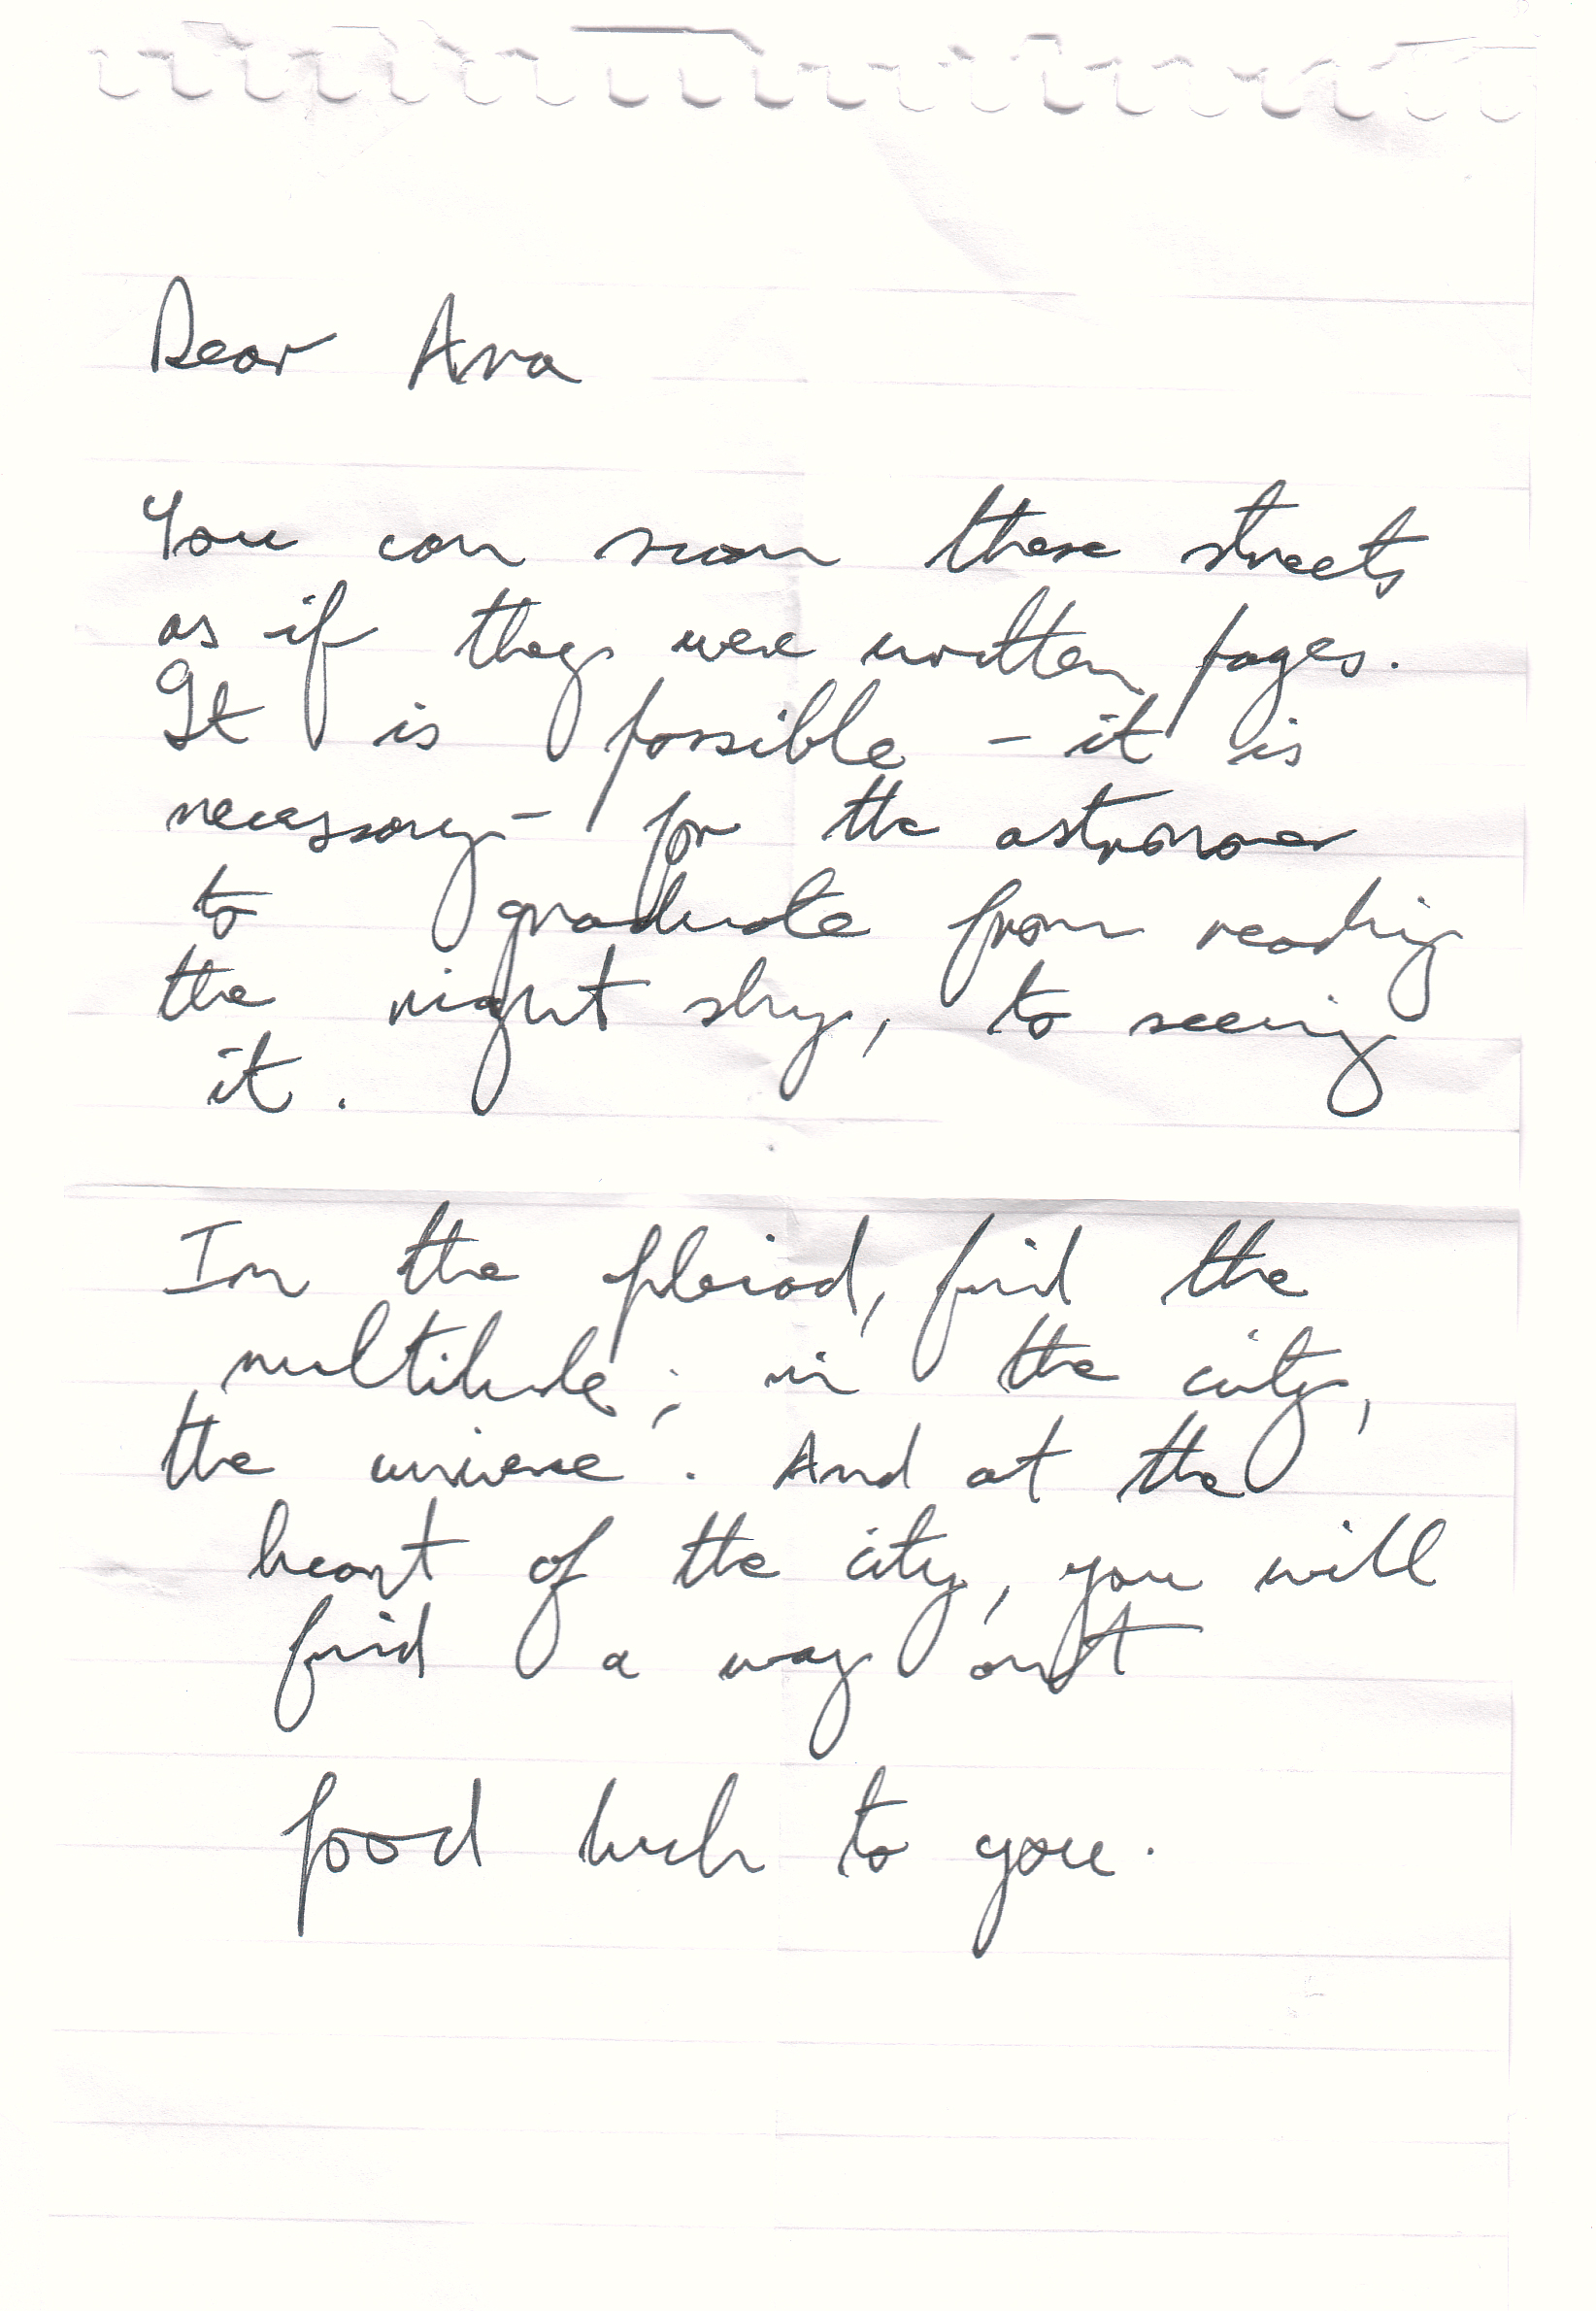 Dear Ana
You can scan these streets
as if they were written pages.
It is possible - it is
necessary - for the astronomer
to graduate from reading
the night sky, to seeing
it.
In the pleiad, find the
multitude; in the city,
the universe. And at the
heart of the city, you will
find a way out
Good luck to you.